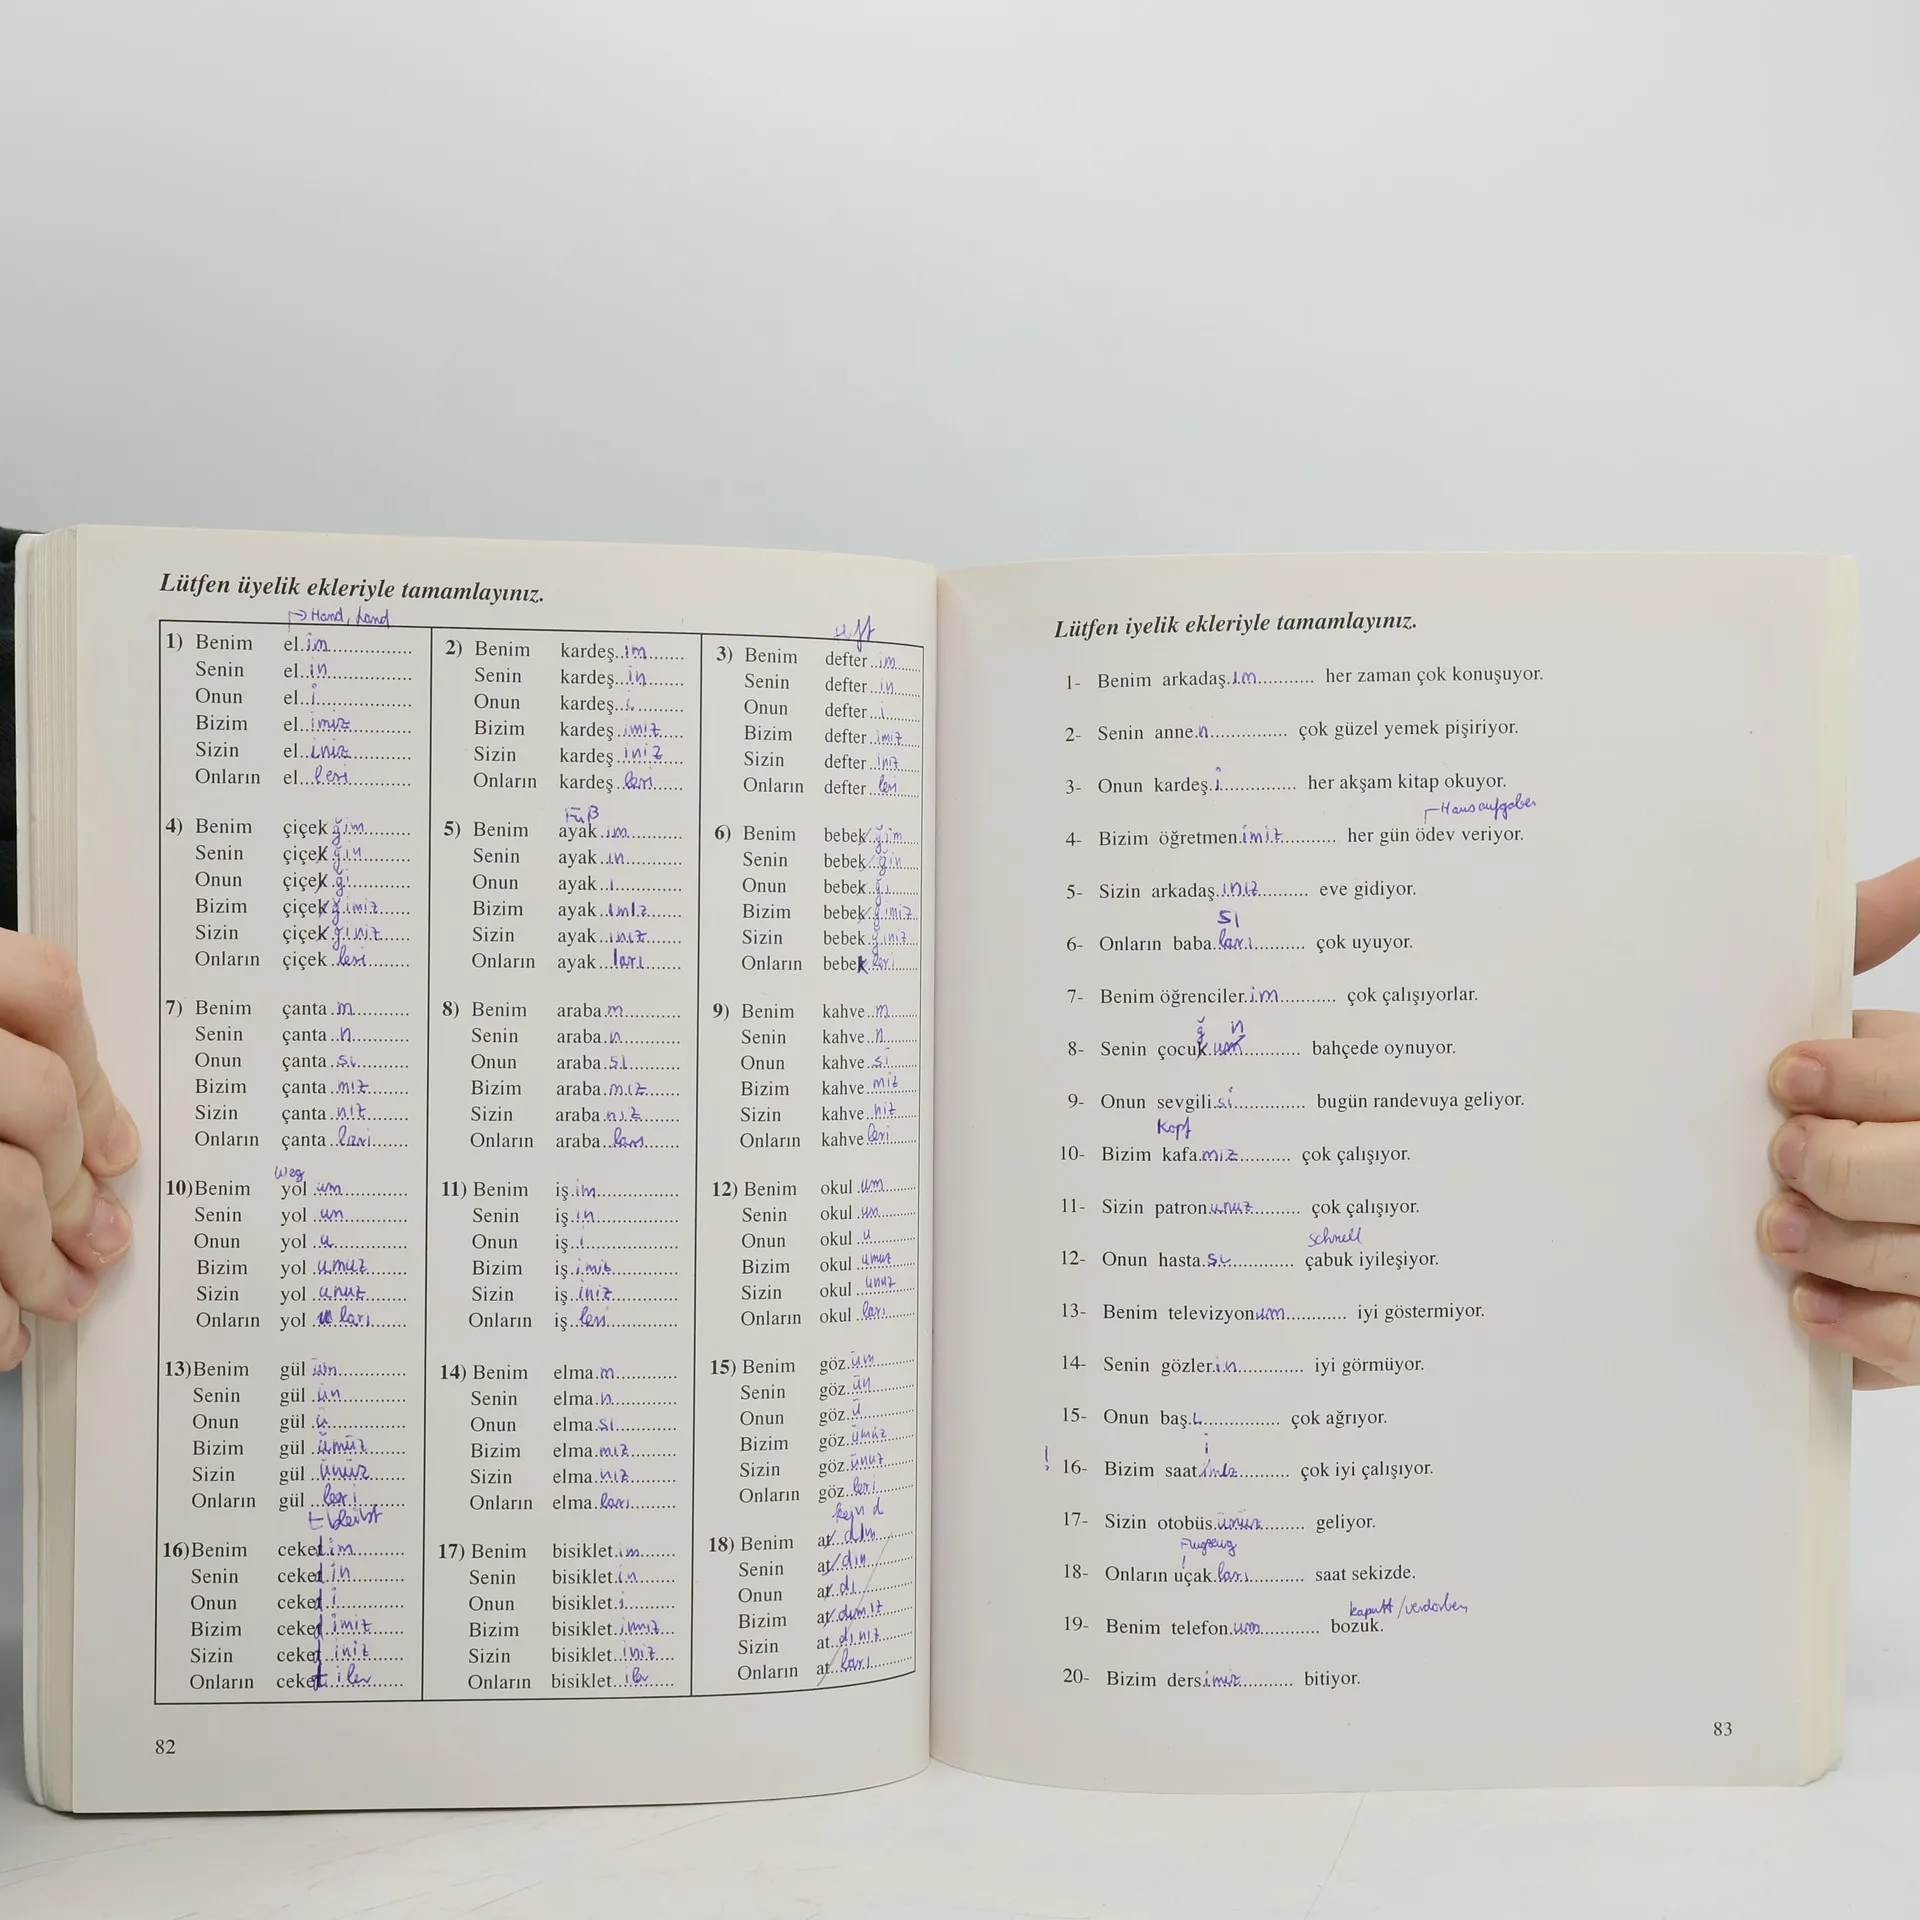 Lütfen üyelik ekleriyle tamamlayınız.
→ Hand, Land
1) Benim el.im
Senin el..in
Onun el..i
Bizim el..imiz
Sizin el..iniz
Onların el..leri
2) Benim kardeş..im
Senin kardeş..in
Onun kardeş..i
Bizim kardeş.imiz
Sizin kardeş.iniz
Onların kardeş.leri
3) Benim defter..im
Senin defter..in
Onun defter..i
Bizim defter..imiz
Sizin defter..iniz
Onların defter..leri
4) Benim çiçek ğim
Senin çiçek ğin
Onun çiçek.ği
Bizim çiçek ğimiz
Sizin çiçek ğiniz
Onların çiçek.leri
Fuß
5) Benim ayak.ım
Senin ayak..ın
Onun ayak..ı
Bizim ayak..ımız
Sizin ayak..ınız
Onların ayak...ları
6) Benim bebek.ğim
Senin bebek ğin
Onun bebek..ği
Bizim bebek.ğimiz
Sizin bebek.ğiniz
Onların bebek.leri
7) Benim çanta.m
Senin çanta..n
Onun çanta..sı
Bizim çanta..mız
Sizin çanta..nız
Onların çanta..ları
8) Benim araba.m
Senin araba.n
Onun araba.sı
Bizim araba.mız
Sizin araba.nız
Onların araba..ları
9) Benim kahve..m
Senin kahve..n
Onun kahve..si
Bizim kahve..miz
Sizin kahve..niz
Onların kahve leri
Weg
10)Benim yol um
Senin yol..un
Onun yol..u
Bizim yol.umuz
Sizin yol..unuz
Onların yol ları
11) Benim iş.im
Senin iş.in
Onun iş..i
Bizim iş.imiz
Sizin iş.iniz
Onların iş..leri
12) Benim okul.um
Senin okul..un
Onun okul..u
Bizim okul umuz
Sizin okul unuz
Onların okul..ları
13)Benim gül üm
Senin gül..ün
Onun gül..ü
Bizim gül..ümüz
Sizin gül..ünüz
Onların gül...leri
14) Benim elma.m
Senin elma.n
Onun elma.sı
Bizim elma.mız
Sizin elma.nız
Onların elma.ları
15) Benim göz.üm
Senin göz..ün
Onun göz..ü
Bizim göz.ümüz
Sizin göz.ünüz
Onların göz..leri
t bleibt
16)Benim ceket.im
Senin ceket.in
Onun ceket.i
Bizim ceket.imiz
Sizin ceket..iniz
Onların ceket.iler
17) Benim bisiklet.im
Senin bisiklet.in
Onun bisiklet.i
Bizim bisiklet.imiz
Sizin bisiklet.iniz
Onların bisiklet..iler
kein d
18) Benim at..dım
Senin at dın
Onun at.dı
Bizim at.dımız
Sizin at..dınız
Onların at..ları
82
Lütfen iyelik ekleriyle tamamlayınız.
1- Benim arkadaş.ım............ her zaman çok konuşuyor.
2- Senin anne.n................ çok güzel yemek pişiriyor.
3- Onun kardeş.i............... her akşam kitap okuyor.
Hausaufgaben
4- Bizim öğretmen.imiz........... her gün ödev veriyor.
5- Sizin arkadaş.ınız.......... eve gidiyor.
sı
6- Onların baba.ları........... çok uyuyor.
7- Benim öğrenciler.im............ çok çalışıyorlar.
ğ n
8- Senin çocuk.um............ bahçede oynuyor.
9- Onun sevgili.si............... bugün randevuya geliyor.
Kopf
10- Bizim kafa.mız........... çok çalışıyor.
11- Sizin patron.unuz......... çok çalışıyor.
schnell
12- Onun hasta.sı............. çabuk iyileşiyor.
13- Benim televizyon.um............ iyi göstermiyor.
14- Senin gözler.in.............. iyi görmüyor.
15- Onun baş.ı............... çok ağrıyor.
i
! 16- Bizim saat.ımız........... çok iyi çalışıyor.
17- Sizin otobüs.ünüz......... geliyor.
Flugzeug
18- Onların uçak.ları........... saat sekizde.
kaputt / verdorben
19- Benim telefon.um............. bozuk.
20- Bizim ders.imiz........... bitiyor.
83